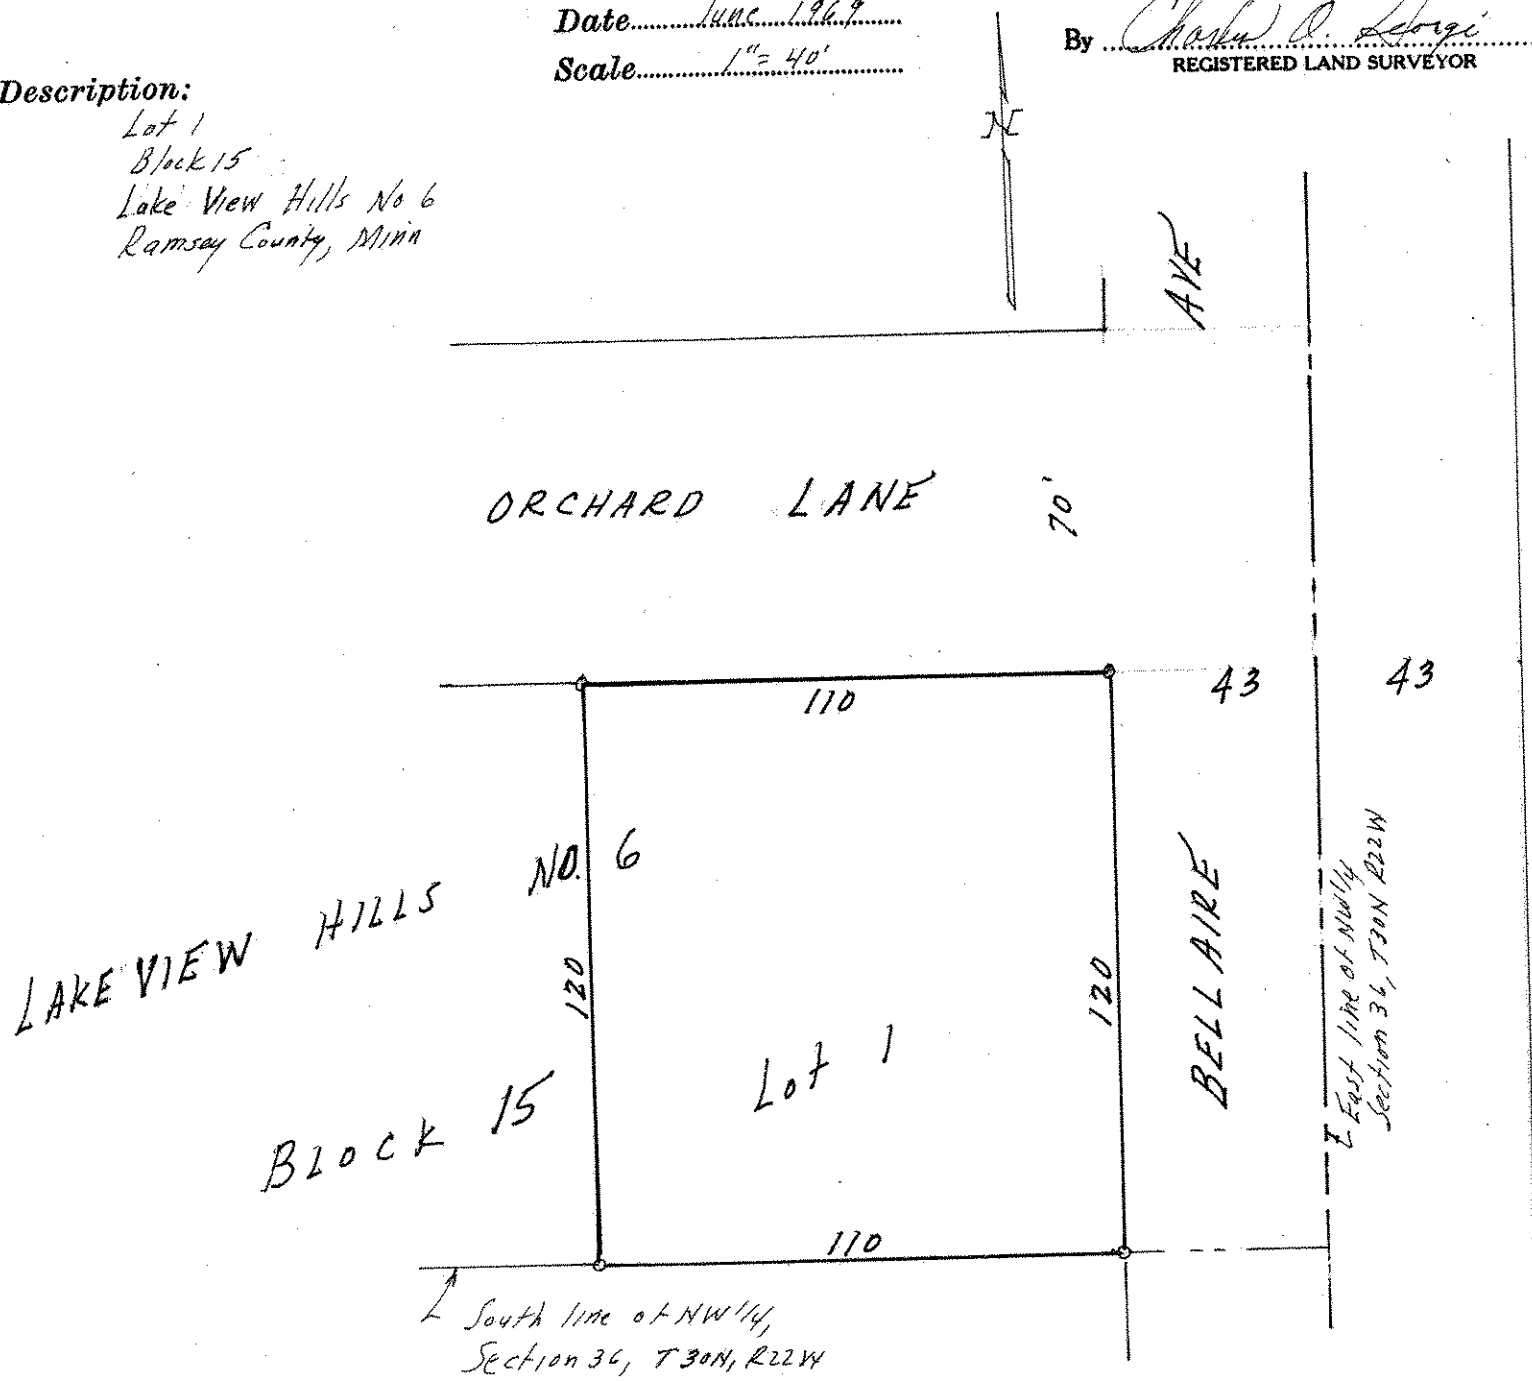 Date June 1969
Scale 1"= 40'
By Charles O. Georgi
REGISTERED LAND SURVEYOR
Description:
Lot 1
Block 15
Lake View Hills No 6
Ramsey County, Minn
N
AVE
ORCHARD LANE
70'
110
43
43
LAKE VIEW HILLS NO. 6
120
120
BELLAIRE
East line of NW 1/4
Section 36, T30N R22W
Lot 1
BLOCK 15
110
South line of NW 1/4,
Section 36, T30N, R22W